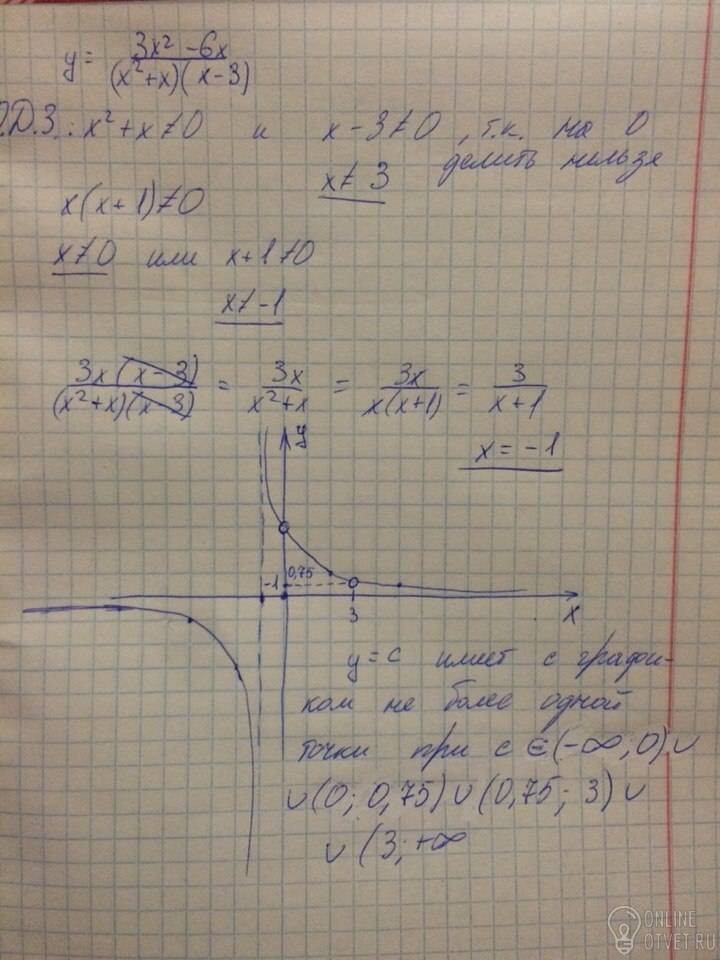 y = (3x² - 6x) / ((x² + x)(x - 3))
О.Д.З.: x² + x ≠ 0 и x - 3 ≠ 0, т.к. на 0
делить нельзя
x ≠ 3
x(x + 1) ≠ 0
x ≠ 0 или x + 1 ≠ 0
x ≠ -1
3x(x - 3) / ((x² + x)(x - 3)) = 3x / (x² + x) = 3x / (x(x + 1)) = 3 / (x + 1)
x = -1
y
-1 0,75
3 x
y = c имеет с графи-
ком не более одной
точки при c ∈ (-∞; 0) ∪
∪ (0; 0,75) ∪ (0,75; 3) ∪
∪ (3; +∞
ONLINE
OTVET.RU